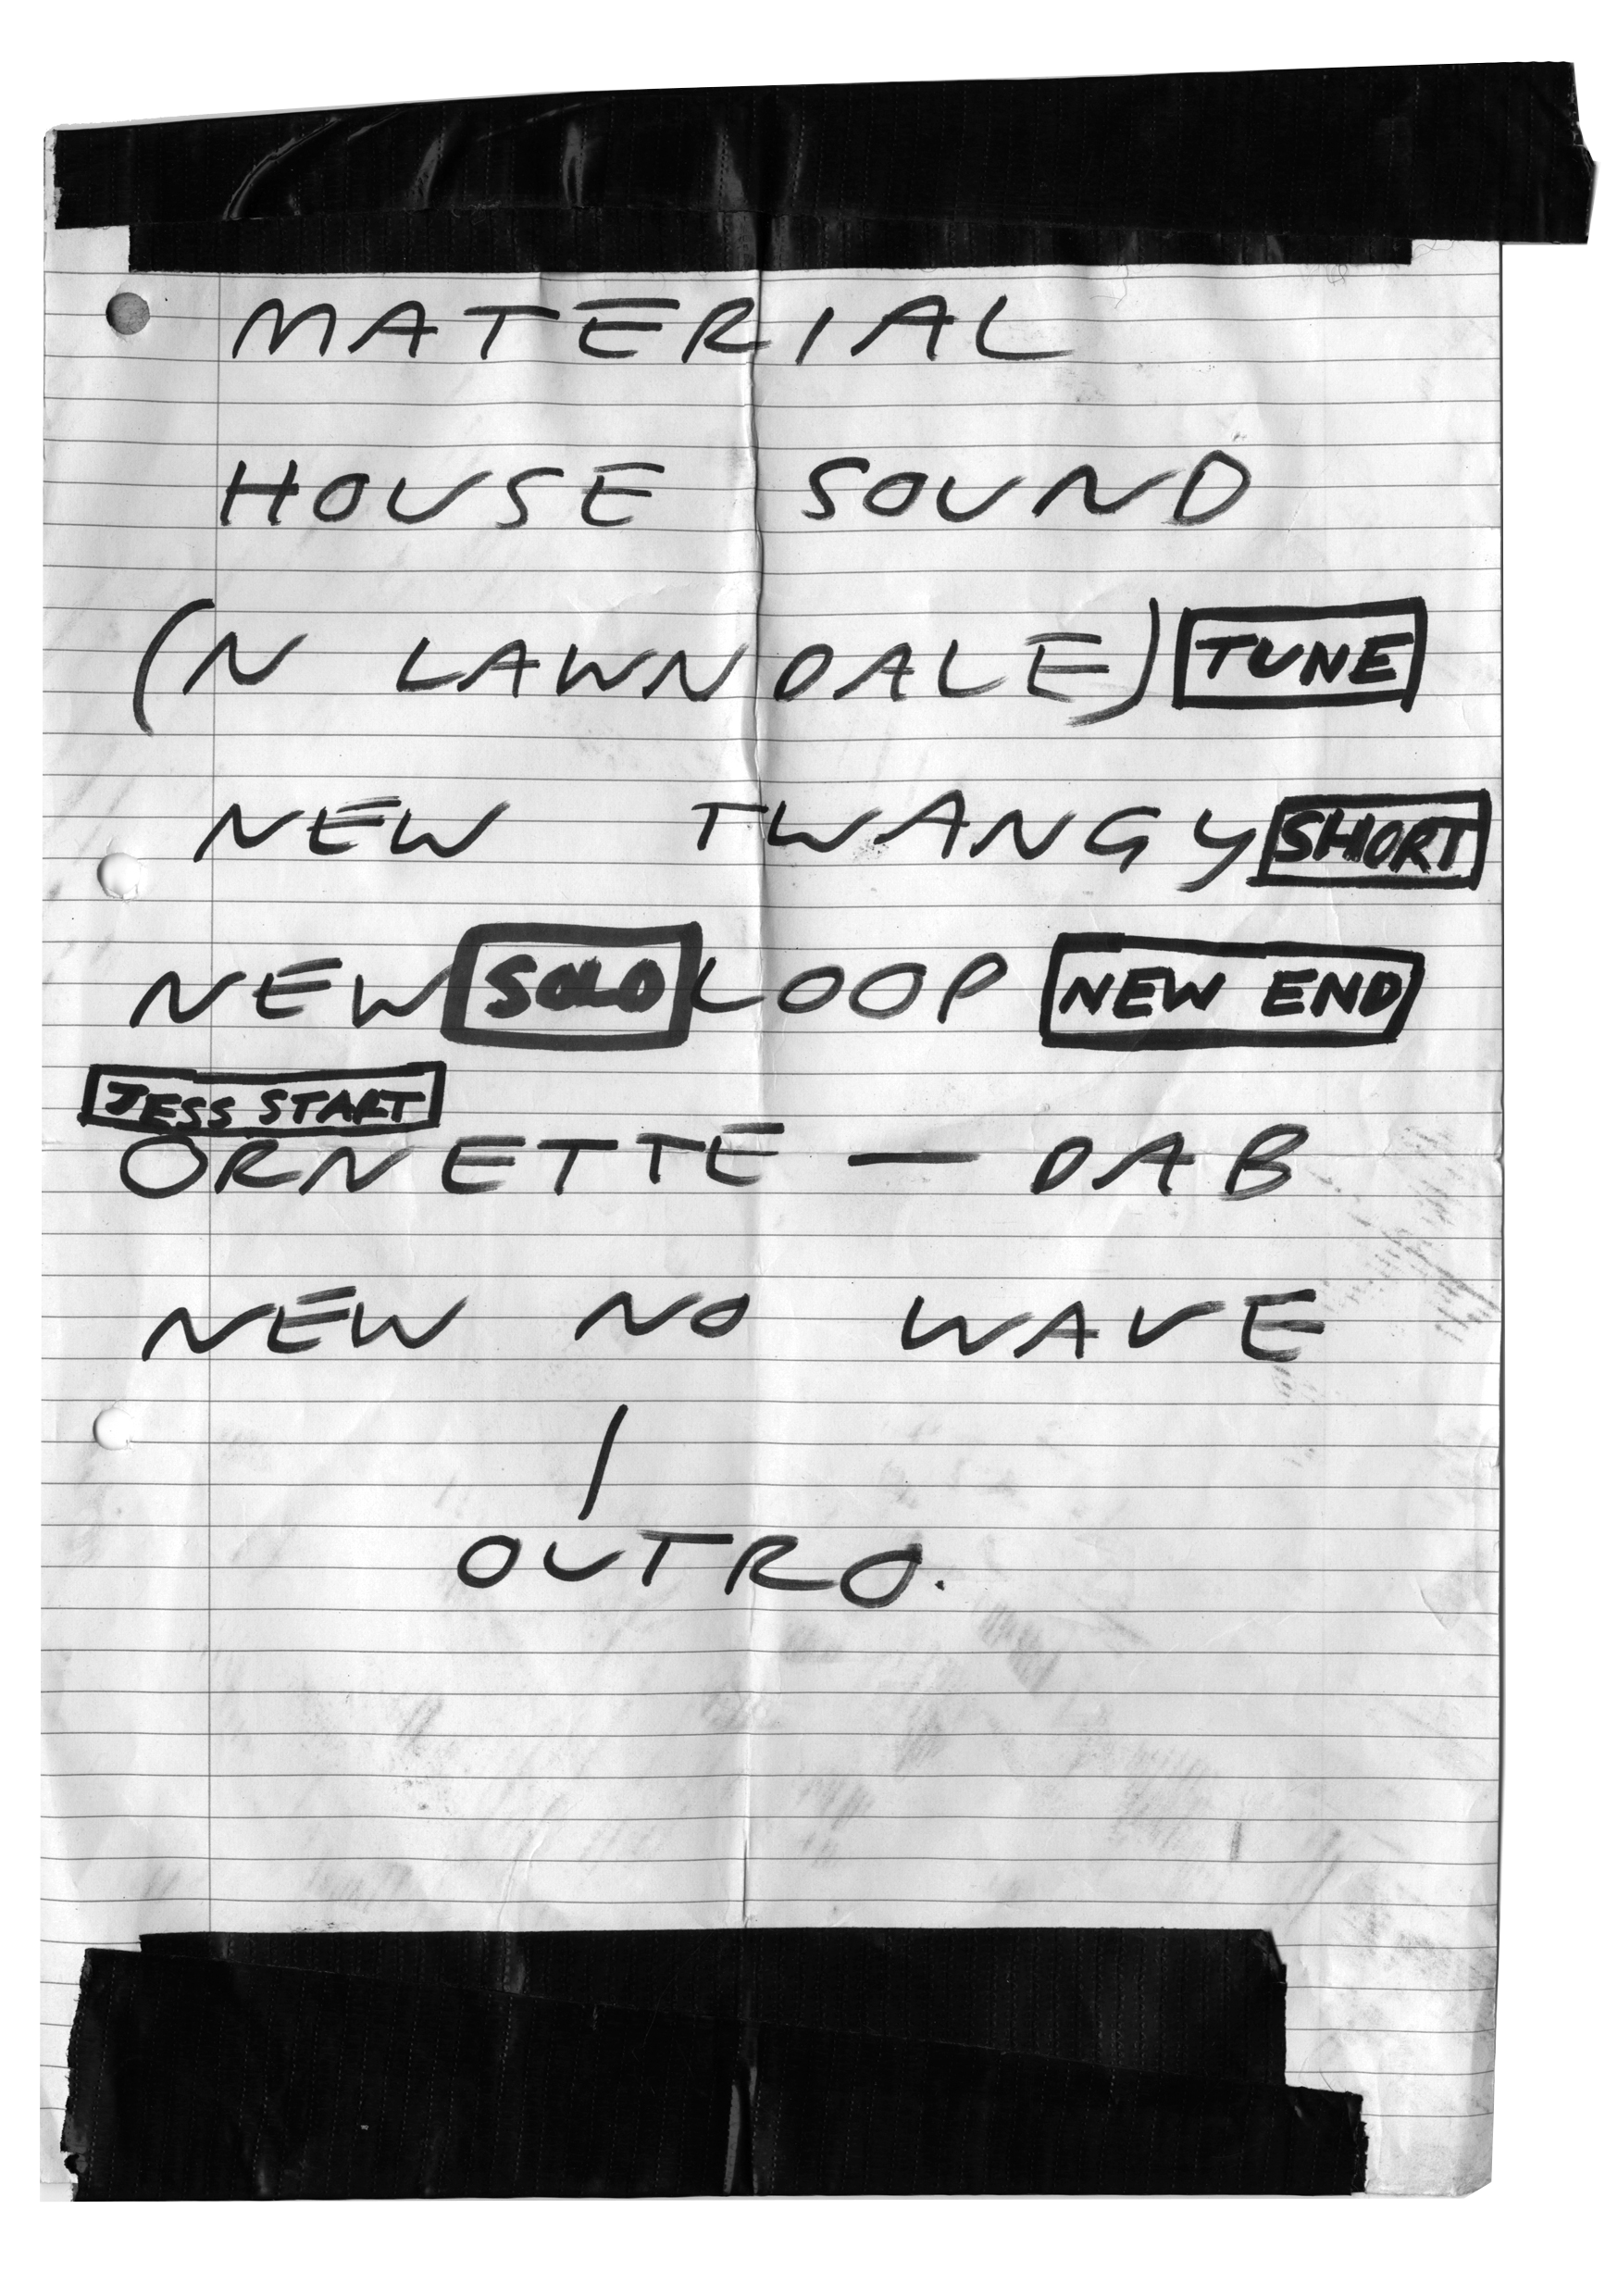 MATERIAL
HOUSE SOUND
(N LAWNDALE) TUNE
NEW TWANGY SHORT
NEW SOLO LOOP NEW END
JESS START
ORNETTE — DAB
NEW NO WAVE
|
OUTRO.